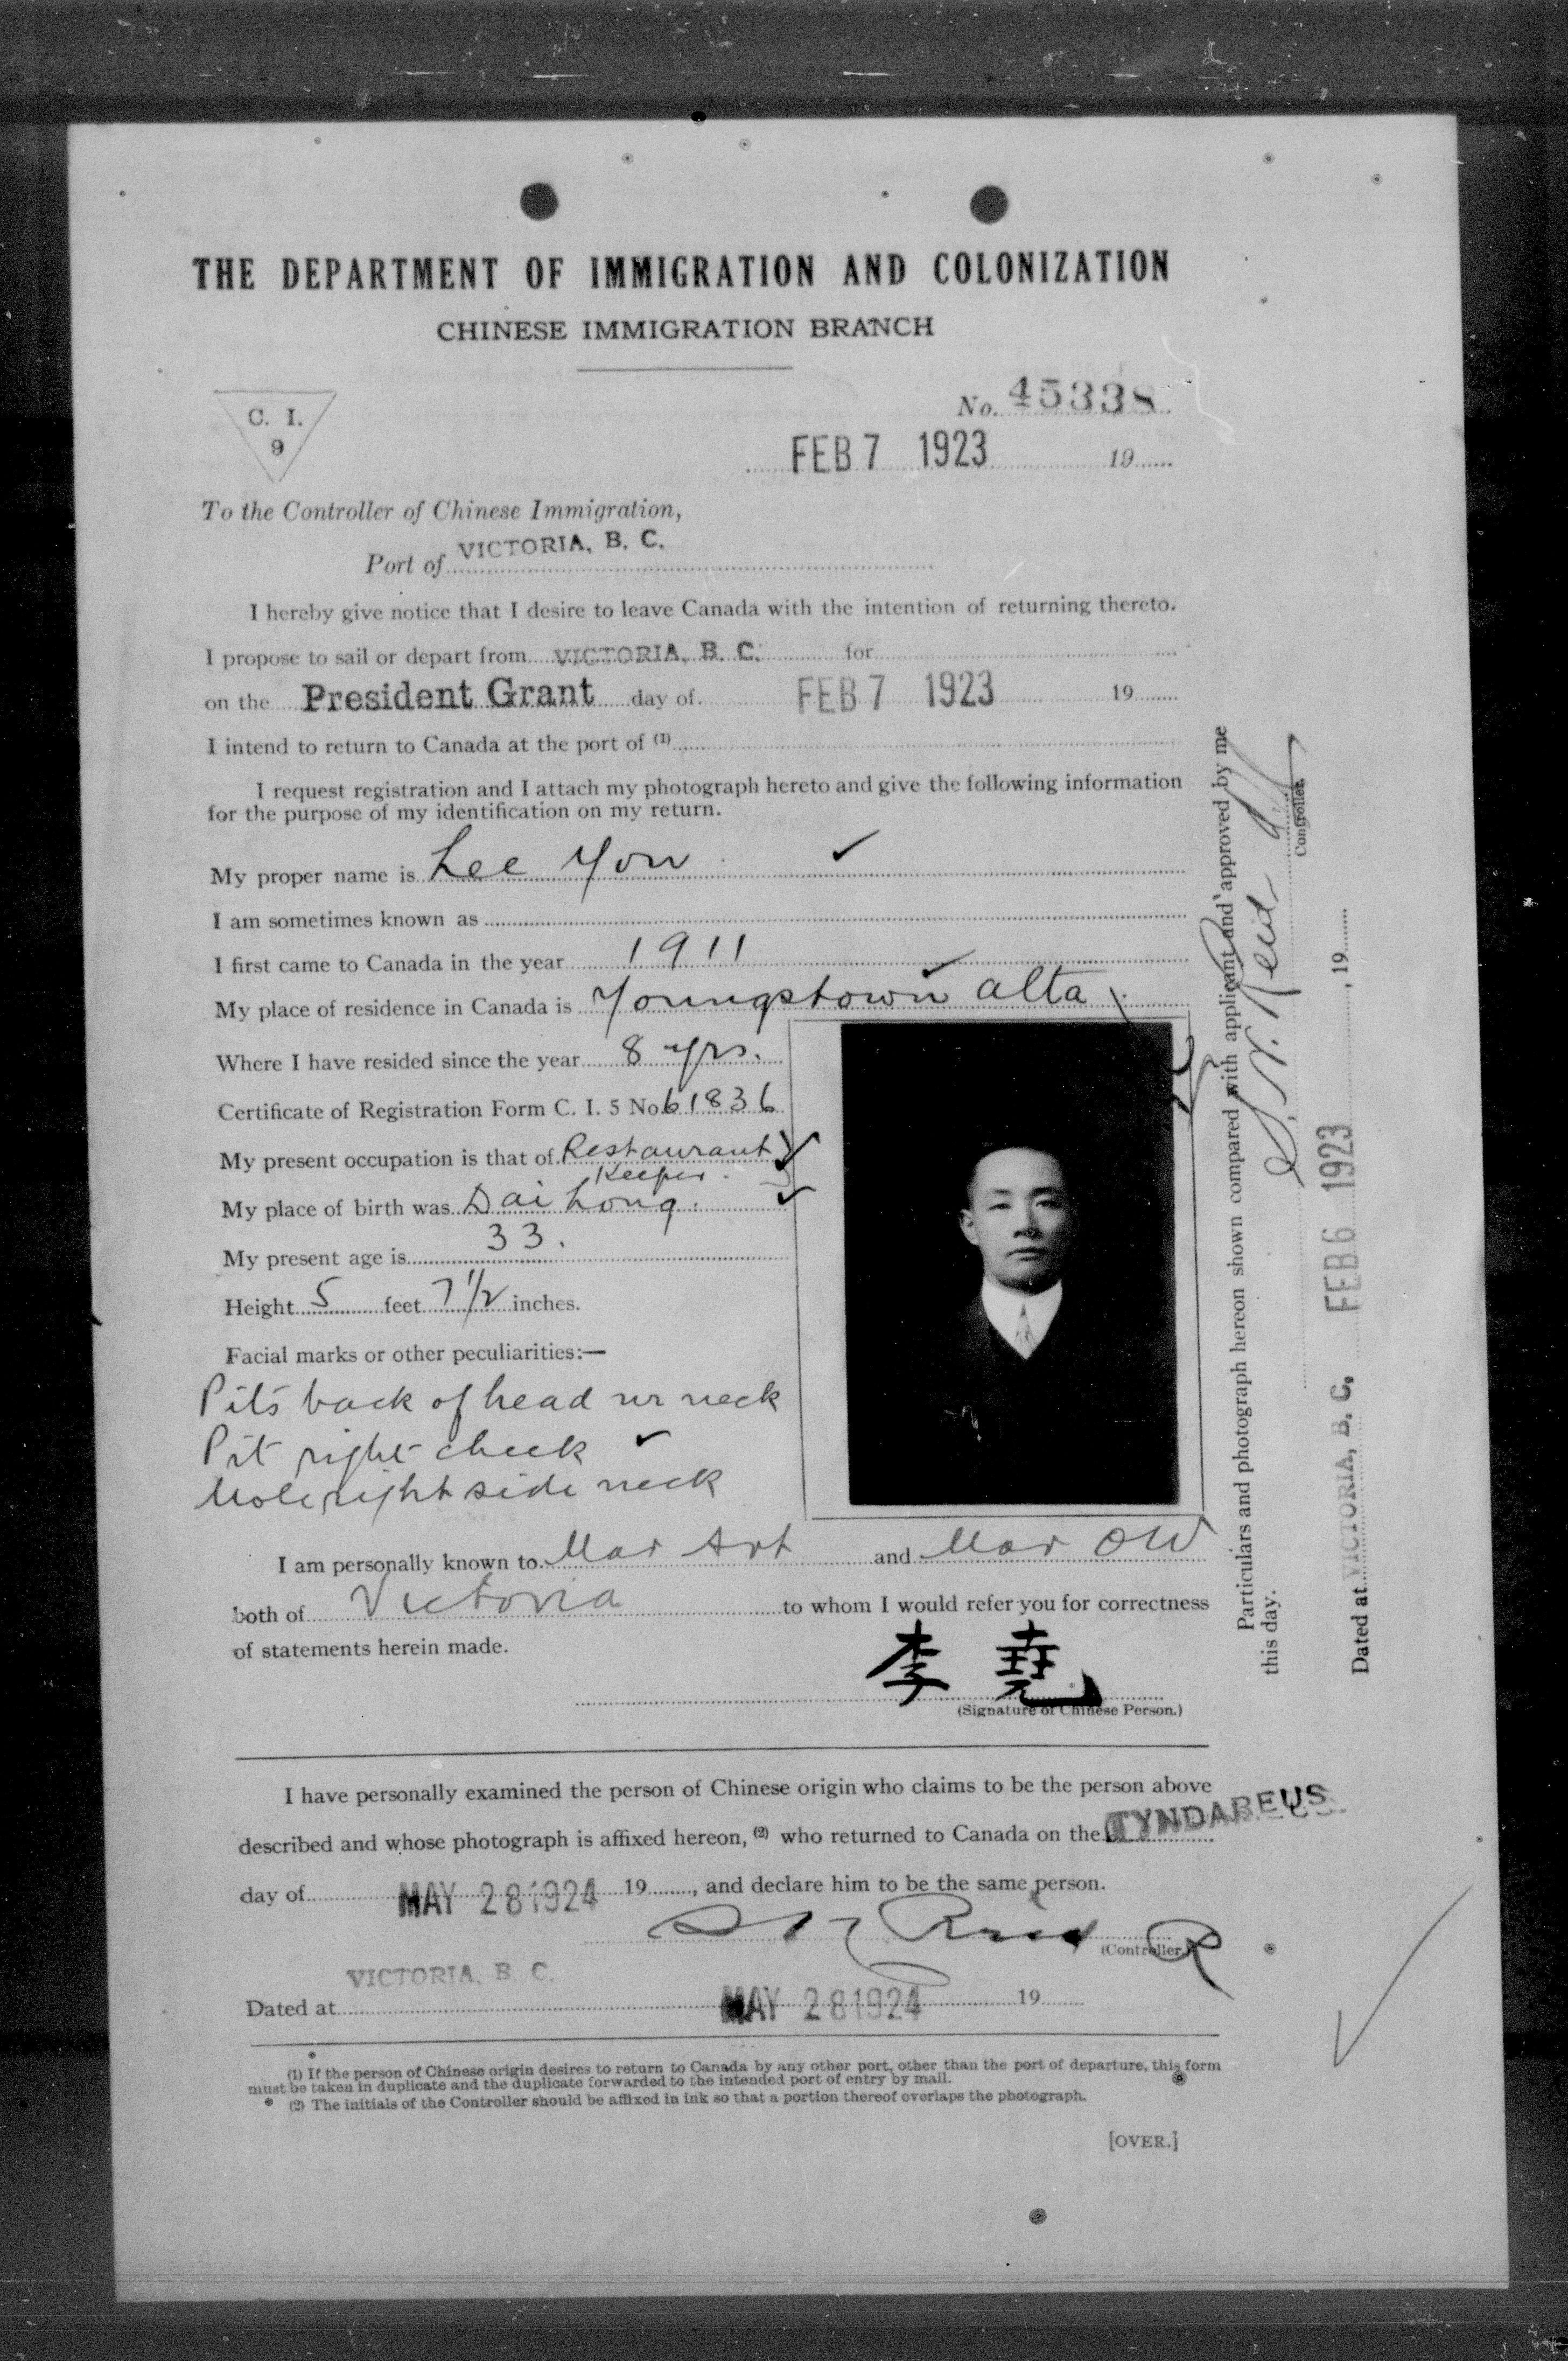 THE DEPARTMENT OF IMMIGRATION AND COLONIZATION
CHINESE IMMIGRATION BRANCH
C. I.
9
No. 45338
FEB 7 1923 19
To the Controller of Chinese Immigration,
Port of VICTORIA, B. C.
I hereby give notice that I desire to leave Canada with the intention of returning thereto.
I propose to sail or depart from VICTORIA, B. C. for
on the President Grant day of FEB 7 1923 19
I intend to return to Canada at the port of (1)
I request registration and I attach my photograph hereto and give the following information
for the purpose of my identification on my return.
My proper name is Lee You
I am sometimes known as
I first came to Canada in the year 1911
My place of residence in Canada is Youngstown alta
Where I have resided since the year 8 yrs.
Certificate of Registration Form C. I. 5 No. 61836
My present occupation is that of Restaurant
Keeper.
My place of birth was Dai Long.
My present age is 33.
Height 5 feet 7 1/2 inches.
Facial marks or other peculiarities:—
Pits back of head nr neck
Pit right cheek
Mole right side neck
I am personally known to Mar Art and Mar OW
both of Victoria to whom I would refer you for correctness
of statements herein made.
李堯
(Signature of Chinese Person.)
I have personally examined the person of Chinese origin who claims to be the person above
described and whose photograph is affixed hereon, (2) who returned to Canada on the TYNDAREUS
day of MAY 28 1924 19, and declare him to be the same person.
(Controller.)
VICTORIA, B. C.
Dated at MAY 28 1924 19
(1) If the person of Chinese origin desires to return to Canada by any other port, other than the port of departure, this form
must be taken in duplicate and the duplicate forwarded to the intended port of entry by mail.
(2) The initials of the Controller should be affixed in ink so that a portion thereof overlaps the photograph.
[OVER.]
Particulars and photograph hereon shown compared with applicant and approved by me
this day.
Controller.
Dated at VICTORIA, B. C. FEB 6 1923, 19